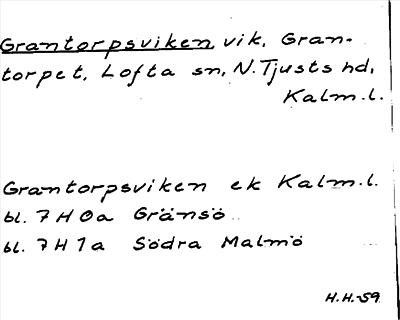 Grantorpsviken, vik, Gran-
torpet, Lofta sn, N. Tjusts hd,
Kalm.l.
Grantorpsviken ek Kalm.l.
bl. 7H0a Gränsö
bl. 7H1a Södra Malmö
H.H.-59